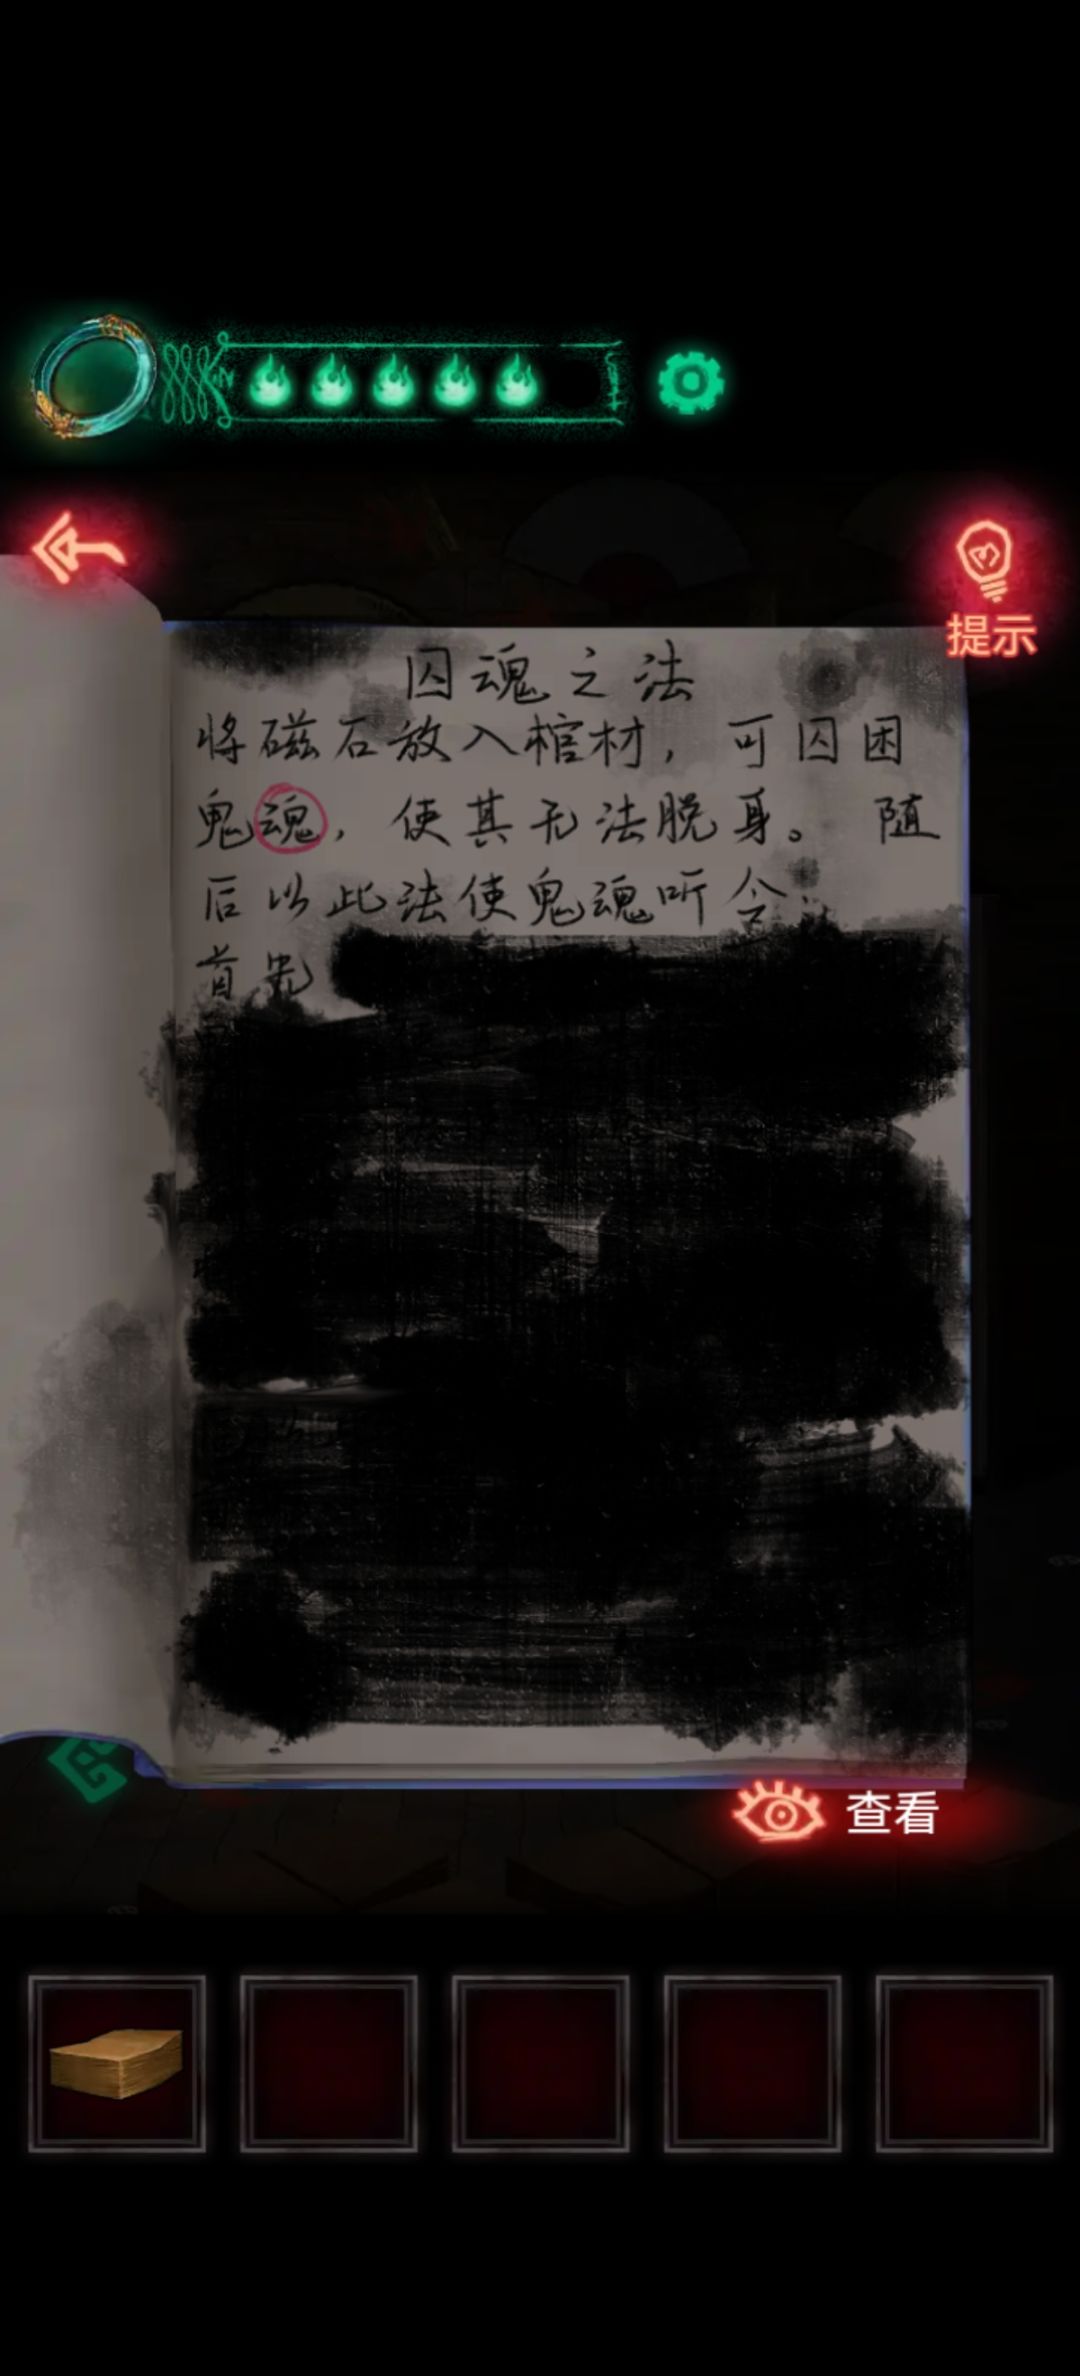 提示
囚魂之法
将磁石放入棺材，可囚困
鬼魂，使其无法脱身。随
后以此法使鬼魂听令
首先
查看